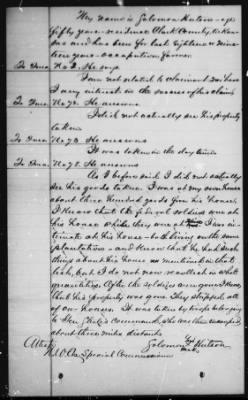 My name is Solomon Hutson - age
fifty years - residence Clark County, Arkan-
sas and has been for last eighteen or nine-
teen years - occupation farmer
To Inter. No 2. He says
I am not related to claimant nor have
I any interest in the success of this claim
To Inter. No 72. He answers
I did not actually see his property
taken
To Inter. No 73. He answers
It was taken in the day time
To Inter. No 75. He answers
As I before said I did not actually
see his goods taken. I was at my own house
about three hundred yards from his house.
I know that the federal soldiers were at
his house while they were at
at his house - both living on the same
plantation - and I know that he had such
things about his house as mentioned in that
list, but I do not now recollect in what
quantities. After the soldiers were gone I know
that his property was gone. They stripped all
of our houses. It was taken by troops belonging
to Gen Steele's command, who was then encamped
about three miles distant.
Attest Solomon Hutson
mark
Special Commissioner